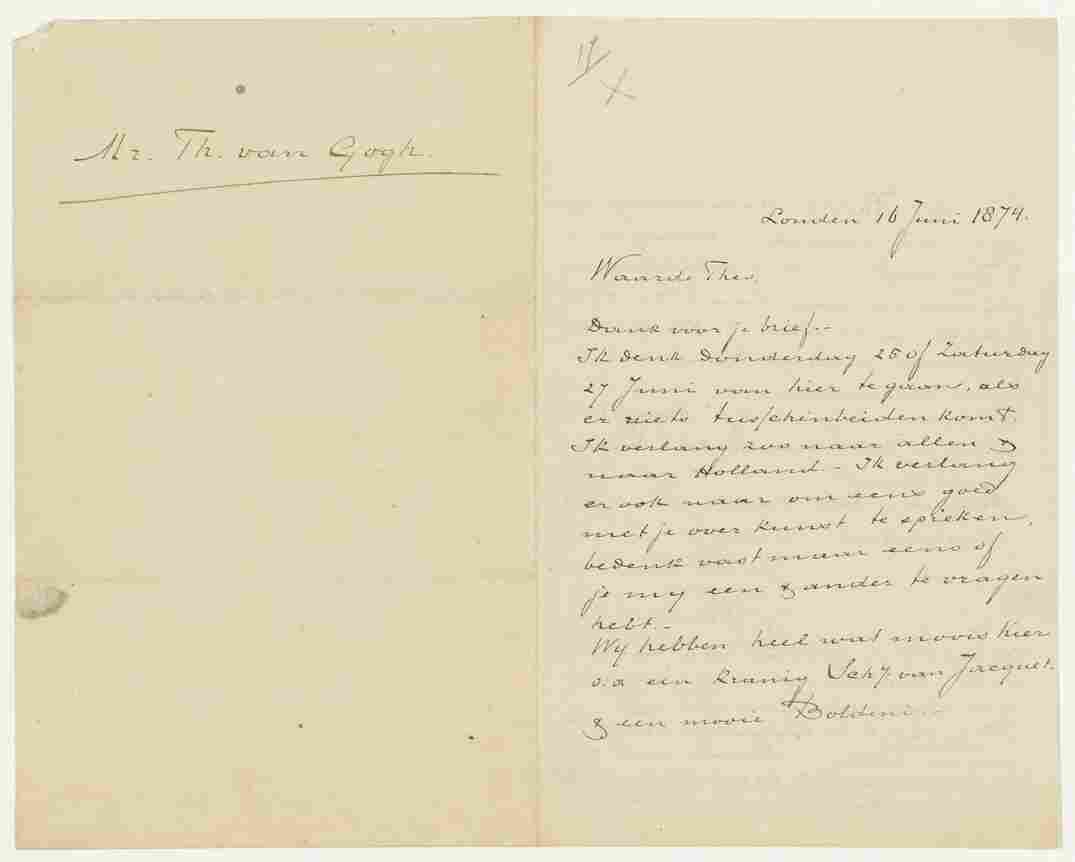 Mr. Th. van Gogh.
Londen 16 Juni 1874.
Waarde Theo,
Dank voor je brief.-
Ik denk Donderdag 25 of Zaturdag
27 Juni van hier te gaan, als
er niets tusschenbeiden komt.
Ik verlang zoo naar allen &
naar Holland.- Ik verlang
er ook naar om eens goed
met je over kunst te spreken,
bedenk vast maar eens of
je mij een & ander te vragen
hebt.-
Wij hebben heel wat moois hier
o.a een kranig Schij van Jacquet.
& een mooie Boldini.-